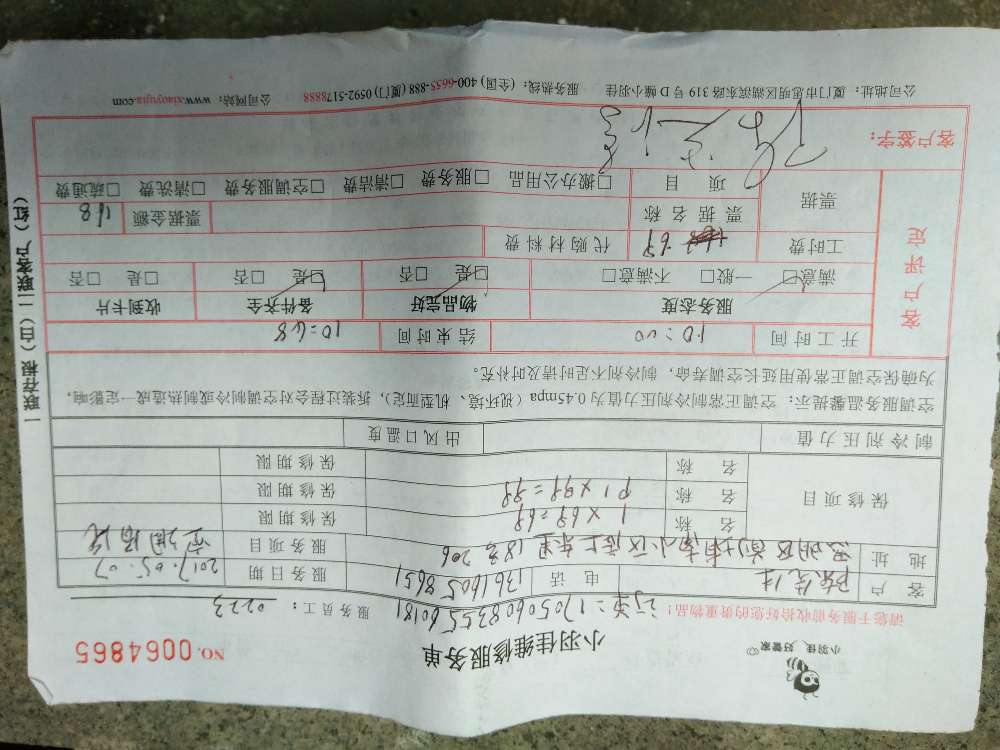 小羽佳 好管家
小羽佳维修服务单
NO. 0064865
请您于服务前收拾好您的贵重物品！
订单：17050608355560181
服务员工： 0223
客户 陈先生 电话 13616058651 服务日期 2017.05.07
地址 思明区前埔南小区 里18号206 服务项目 空调清洗
保修项目 名称 1×69=69 保修期限
名称 P1×99=99 保修期限
名称 保修期限
制冷剂压力值 出风口温度
空调服务温馨提示：空调正常制冷剂压力值为0.45mpa（视环境、机型而定），拆装过程会对空调制冷或制热造成一定影响，
为确保空调正常使用延长空调寿命，制冷剂不足时请及时补充。
客户评定
开工时间 10:00 结束时间 10:48
服务态度 物品完好 备件齐全 收到卡片
满意□ 一般□ 不满意□ □是 □否 □是 □否 □是 □否
工时费 168 代购材料费
票据 票据名称 票据金额 168
项目 □搬办公用品 □服务费 □清洁费 □空调服务费 □清洗费 □疏通费
客户签字：
公司地址：厦门市思明区湖滨东路319号D幢小羽佳 服务热线：（全国）400-6655-888（厦门）0592-5178888 公司网站：www.xiaoyujia.com
一联存根（白）二联客户（红）